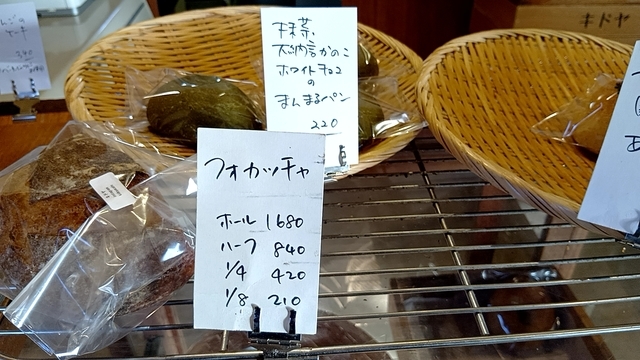 抹茶
大納言かのこ
ホワイトチョコ
の
まんまるパン
220
フォカッチャ
ホール 1680
ハーフ 840
1/4 420
1/8 210
キドヤ